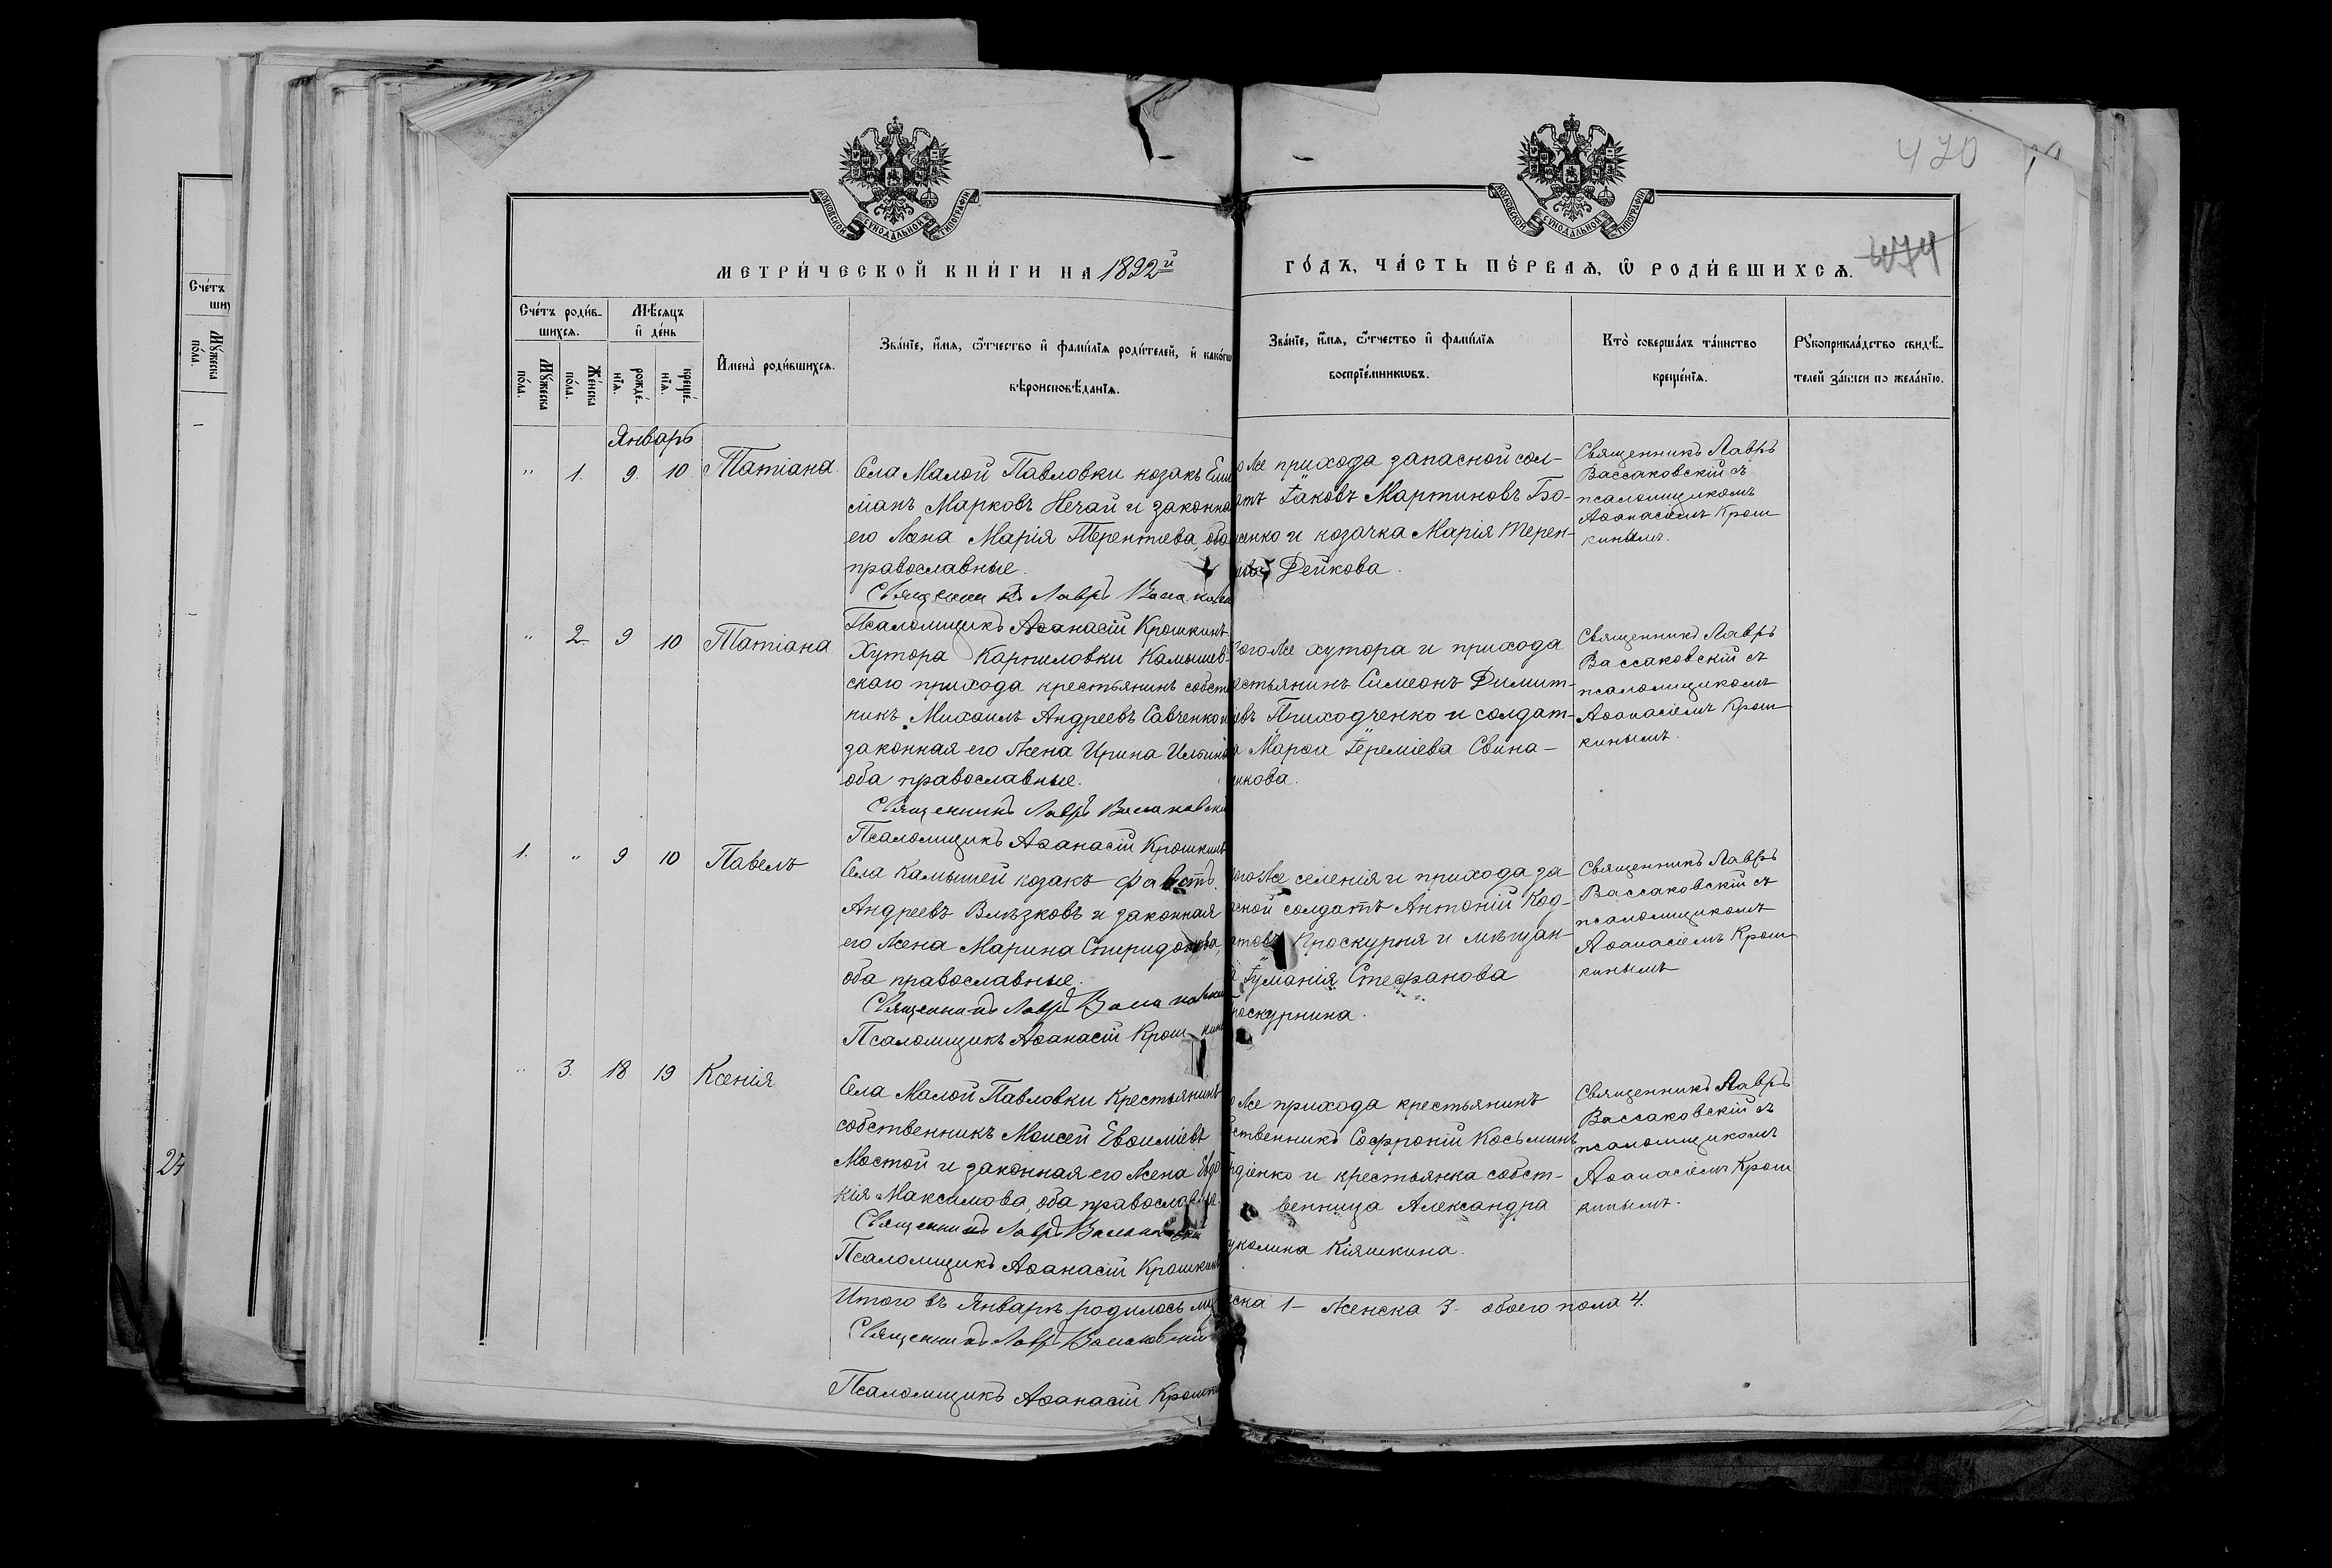 470
МОСКОВСКОЙ СѴНОДАЛЬНОЙ ТИПОГРАФІИ
МОСКОВСКОЙ СѴНОДАЛЬНОЙ ТИПОГРАФІИ
МЕТРИ́ЧЕСКОЙ КНИ́ГИ НА 1892й
ГО́ДЪ, ЧА́СТЬ ПЕ́РВАѦ, Ѡ҆ РОДИ́ВШИХСѦ.
474
Сче́тъ роди́в-
шихся.
Мѣ́сяцъ
и҆ де́нь
Мꙋ́жеска
по́ла.
Же́нска
по́ла.
рожде́-
нїя.
креще́-
нїя.
И҆мена̀ роди́вшихся.
Зва́нїе, и҆́мя, ѻ҆́тчество и҆ фамѵ́лїя роди́телей, и҆ како́гѡ
вѣроисповѣ́данїя.
Зва́нїе, и҆́мя, ѻ҆́тчество и҆ фамѵ́лїя
воспрїе́мникѡвъ.
Кто̀ соверша́лъ та́инство
креще́нїя.
Рꙋкоприкла́дство свидѣ́-
телей за́писи по жела́нїю.
Сче́тъ
Мꙋ́жеска
по́ла.
27
Январь
" 1. 9. 10. Татіана.
Села Малой Павловки козакъ
Марковъ Нечай и законная
его жена Марія Терентіева, оба
православные.
Священникъ Лавръ
Псаломщикъ Аѳанасій Крошкинъ
же прихода запасной сол-
датъ Іаковъ Мартиновъ Бо-
енко и козачка Марія Терен-
Дейкова.
Священникъ Лавръ
Вассаковскій съ
псаломщикомъ
Аѳанасіемъ Крош
кинымъ.
" 2 9 10 Татіана
Хутора Карпиловки Камышев-
скаго прихода крестьянинъ собст
никъ Михаилъ Андреевъ Савченко и
законная его жена Ирина Ильина
оба православные.
Священникъ Лавръ Вассаковскій
Псаломщикъ Аѳанасій Крошкинъ
тогоже хутора и прихода
крестьянинъ Симеонъ Димит-
ріевъ Приходченко и солдат-
ка Марѳа Іереміева Свина-
никова.
Священникъ Лавръ
Вассаковскій съ
псаломщикомъ
Аѳанасіемъ Крош
кинымъ.
1. " 9 10 Павелъ
Села Камышей козакъ Фавстъ
Андреевъ Влѣзковъ и законная
его жена Марина Спиридонова,
оба православные.
Священникъ Лавръ Вассаковскій
Псаломщикъ Аѳанасій Крошкинъ
тогоже селенія и прихода за
пасной солдатъ Антоній Код-
ратовъ Проскурня и мѣщан-
ка Іуліанія Стефанова
Проскурнина.
Священникъ Лавръ
Вассаковскій съ
псаломщикомъ
Аѳанасіемъ Крош
кинымъ
" 3. 18 19 Ксенія
Села Малой Павловки Крестьянинъ
собственникъ Моисей Евѳиміевъ
Мостой и законная его жена Евдо
кія Максимова, оба православные.
Священникъ Лавръ Вассаковскій
Псаломщикъ Аѳанасій Крошкинъ
же прихода крестьянинъ
собственникъ Софроній Косьминъ
и крестьянка собст-
венница Александра
Кіяшкина.
Священникъ Лавръ
Вассаковскій съ
псаломщикомъ
Аѳанасіемъ Крош
кинымъ.
Итого въ Январѣ родилось мужеска 1 - женска 3 - обоего пола 4.
Священникъ Лавръ Вассаковскій
Псаломщикъ Аѳанасій Крошкинъ